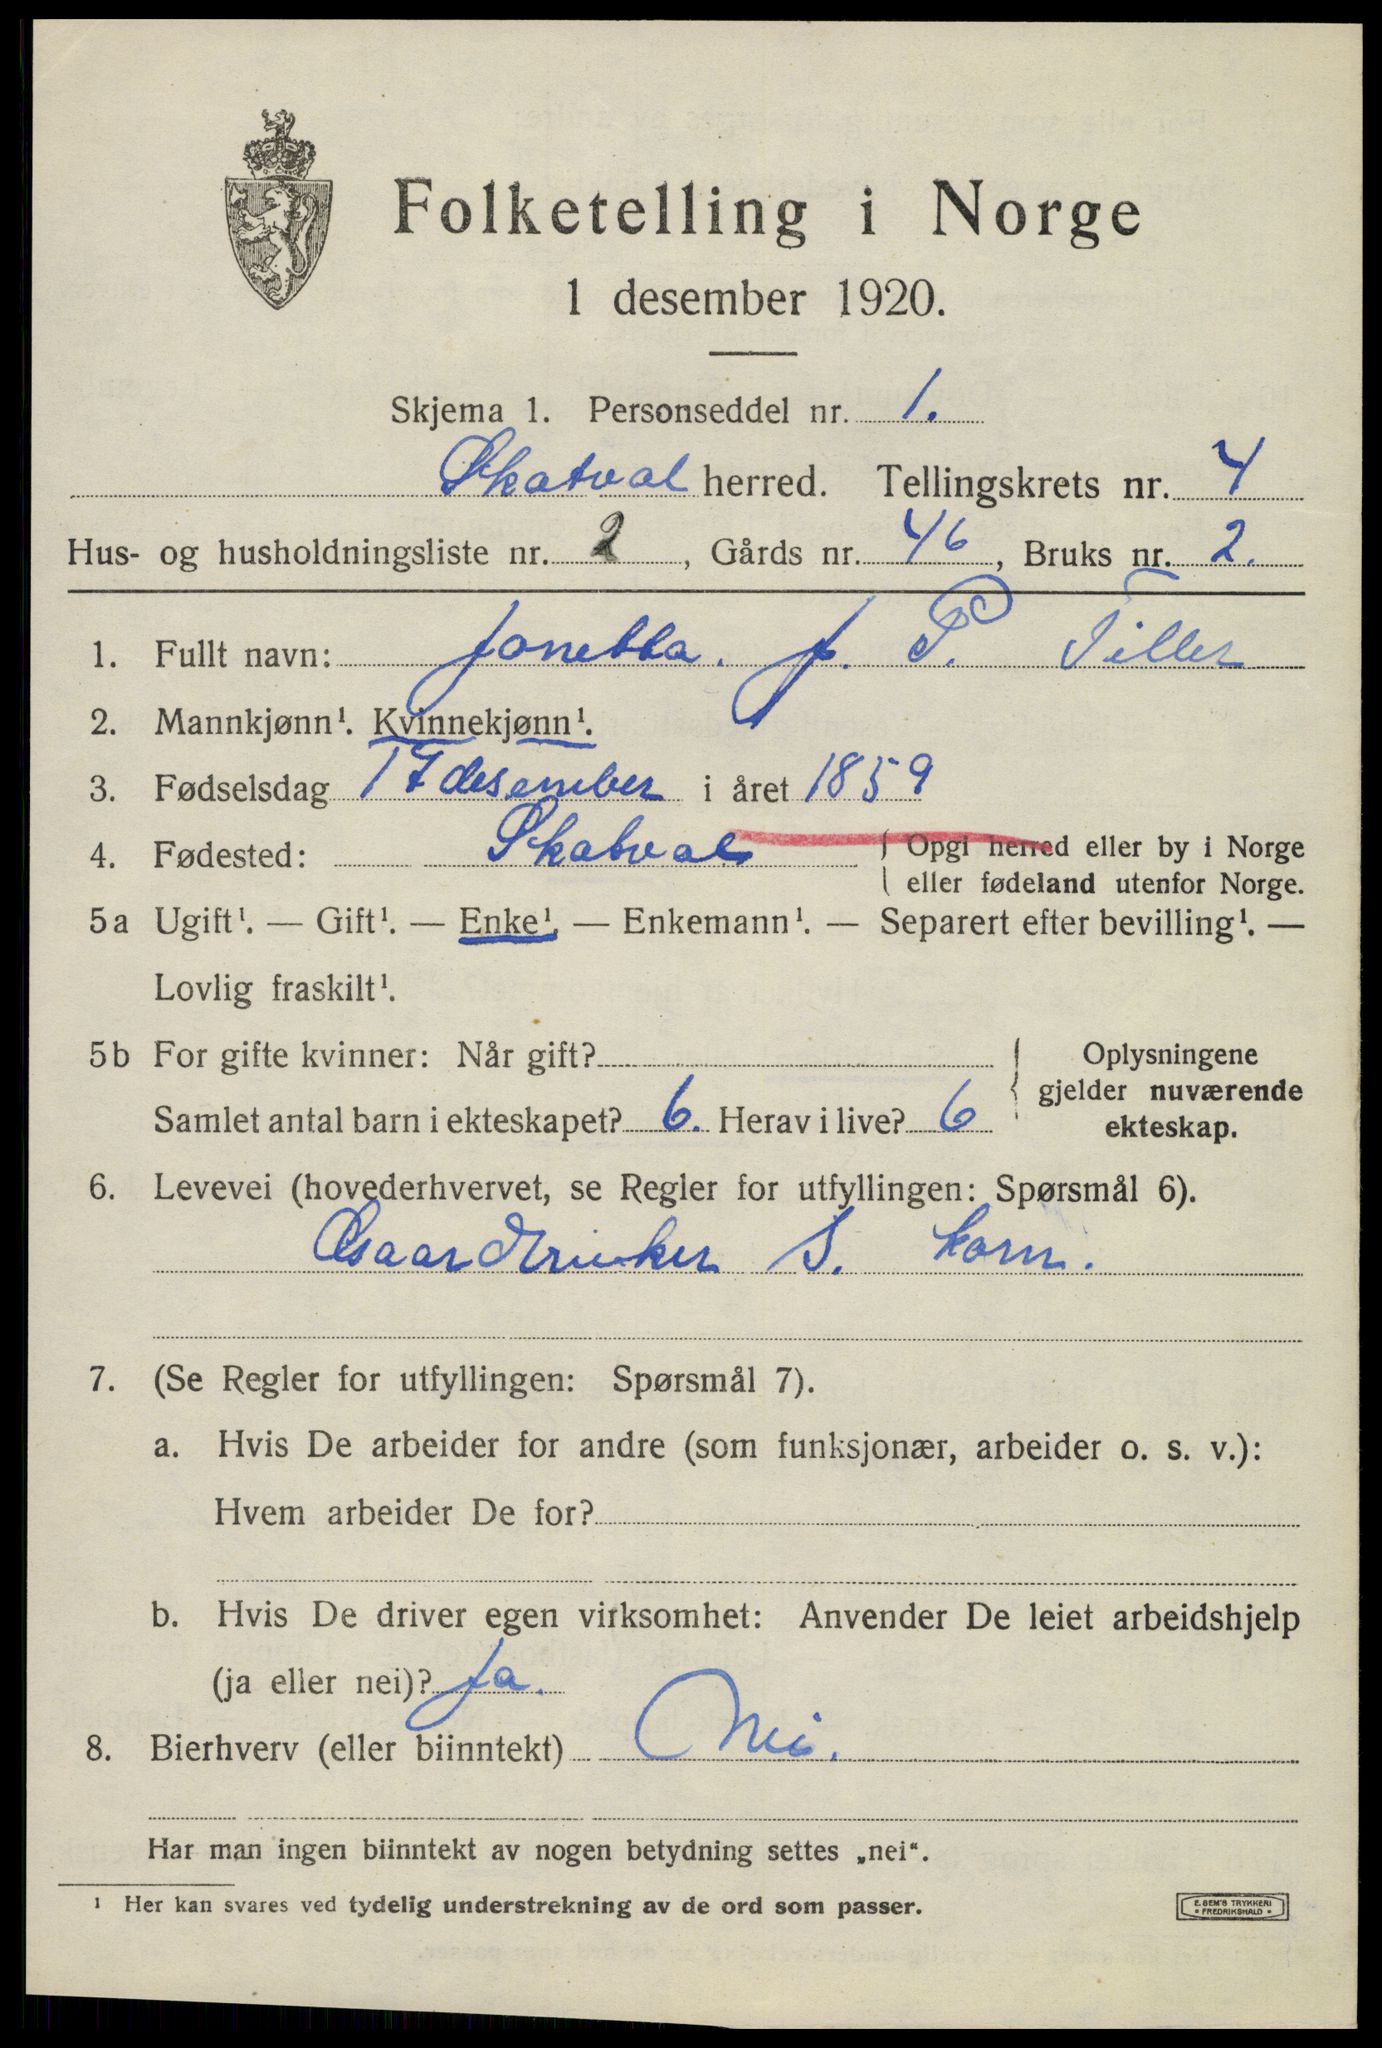 Folketelling i Norge
1 desember 1920.
Skjema 1. Personseddel nr. 1.
Skatval herred. Tellingskrets nr. 4
Hus- og husholdningsliste nr. 2, Gårds nr. 46, Bruks nr. 2.
1. Fullt navn: Jonetta. J. P. Tiller
2. Mannkjønn¹. Kvinnekjønn¹.
3. Fødselsdag 17 desember i året 1859
4. Fødested: Skatval { Opgi herred eller by i Norge
eller fødeland utenfor Norge.
5a Ugift¹. — Gift¹. — Enke¹. — Enkemann¹. — Separert efter bevilling¹. —
Lovlig fraskilt¹.
5b For gifte kvinner: Når gift?
Samlet antal barn i ekteskapet? 6. Herav i live? 6
Oplysningene
gjelder nuværende
ekteskap.
6. Levevei (hovederhvervet, se Regler for utfyllingen: Spørsmål 6).
S. korn.
7. (Se Regler for utfyllingen: Spørsmål 7).
a. Hvis De arbeider for andre (som funksjonær, arbeider o. s. v.):
Hvem arbeider De for?
b. Hvis De driver egen virksomhet: Anvender De leiet arbeidshjelp
(ja eller nei)? Ja.
8. Bierhverv (eller biinntekt) Nei.
Har man ingen biinntekt av nogen betydning settes „nei“.
¹ Her kan svares ved tydelig understrekning av de ord som passer.
E. SEM'S TRYKKERI
• FREDRIKSHALD •